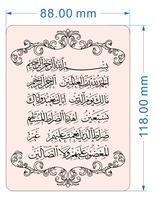 88.00 mm
118.00 mm
بسم الله الرحمن الرحيم
الحمد لله رب العالمين الرحمن الرحيم
مالك يوم الدين إياك نعبد وإياك
نستعين اهدنا الصراط المستقيم
صراط الذين أنعمت عليهم غير
المغضوب عليهم ولا الضالين